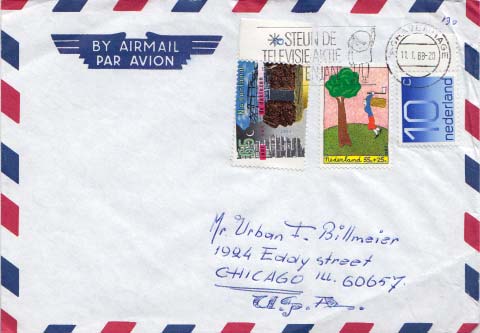 BY AIRMAIL
PAR AVION
STEUN DE
TELEVISIE AKTIE
'S-GRAVENHAGE
11.1.88-20
Nederland 55c+25ct
10 c
nederland
Mr. Urban F. Billmeier
1924 Eddy street
CHICAGO ILL. 60657.
U.S.A.